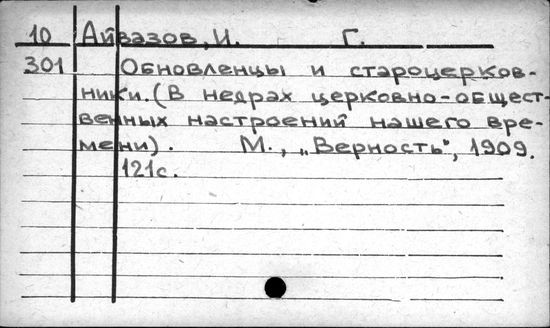 10 Айвазов, И. Г.
301 Обновленцы и староцерков-
ники. (В недрах церковно-общест-
венных настроений нашего вре-
мени). М., „Верность", 1909.
121с.